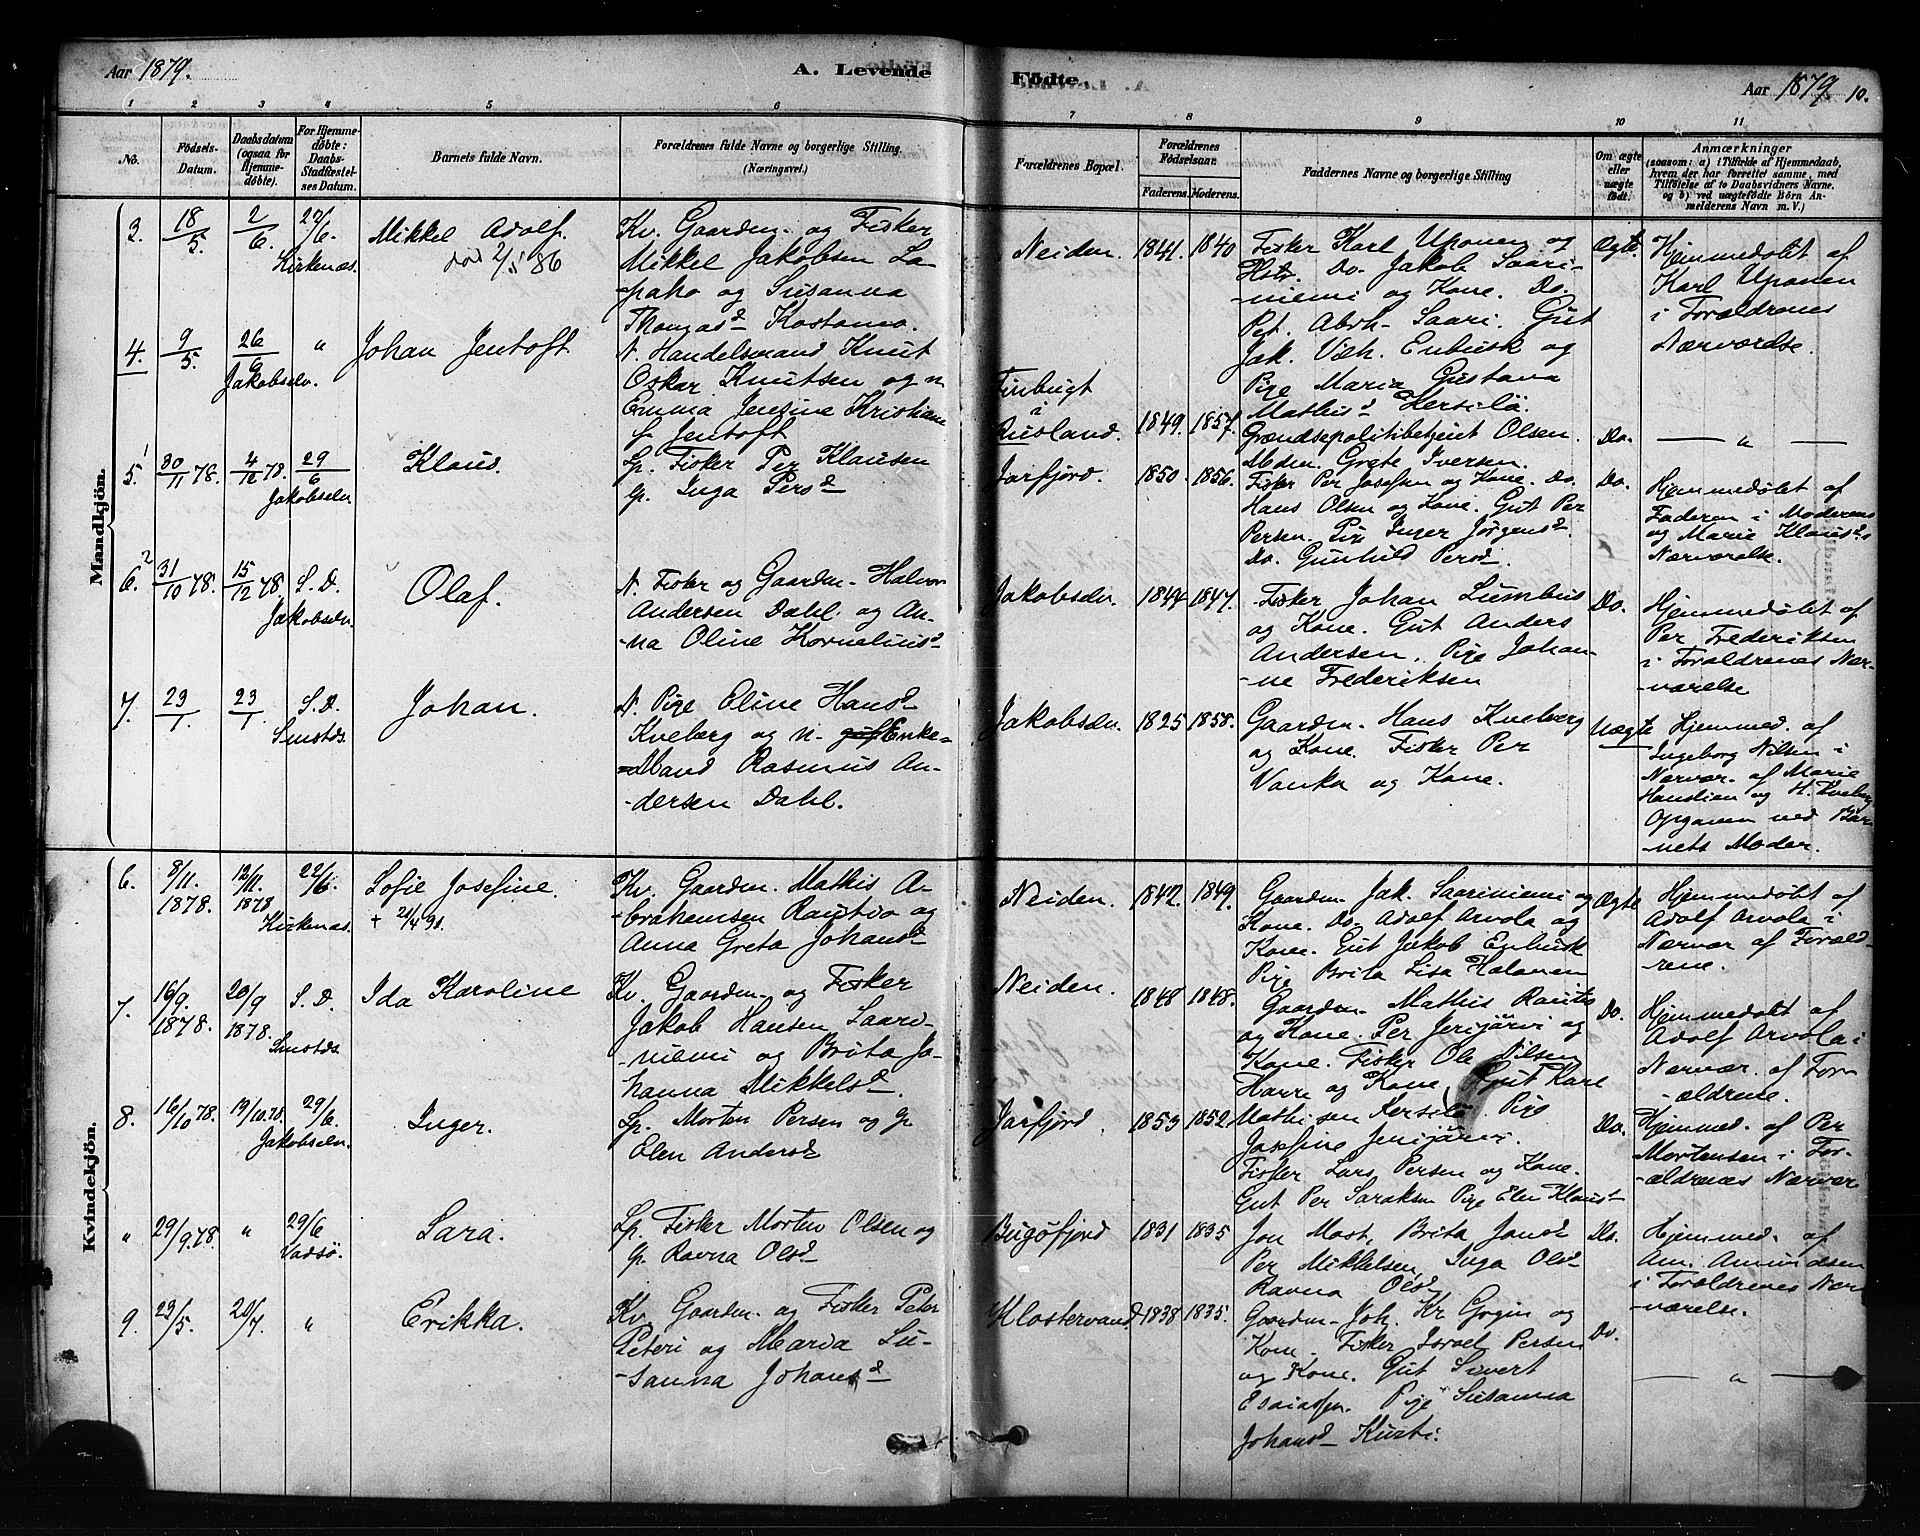 Aar 1879.
A. Levende
Födte.
Aar 1879
10.
1 2 3 4 5 6 7 8 9 10 11
No.
Födsels-Datum.
Daabsdatum (ogsaa for Hjemme-döbte).
For Hjemme-döbte: Daabs-Stadfæstel-ses Datum.
Barnets fulde Navn.
Forældrenes fulde Navne og borgerlige Stilling.
(Næringsvei.)
Forældrenes Bopæl.
Forældrenes Födselsaar.
Faderens. Moderens.
Faddernes Navne og borgerlige Stilling
Om ægte eller uægte födt.
Anmærkninger
(saasom: a) i Tilfælde af Hjemmedaab,
hvem der har forrettet samme, med
Tilföielse af to Daabsvidners Navne.
og b) ved uægtefödte Börn An-
melderens Navn m. V.)
Mandkjön.
3. 18/5 2/6 29/6 Kirkenæs. Mikkel Adolf.
död 2/5 86
Kv. Gaardm. og Fisker
Mikkel Jakobsen La-
-paho og Susanna
Thomasd Kostamo.
Neiden. 1841. 1840
Fisker Karl Uponen og
Do. Jakob Saari-
-niemi og Kone. Do.
Pet. Abrh. Saari. Gut
Jak. Enbusk og
Pige Maria Gustava
Mathisd Kersilö.
Ægte.
Hjemmedöbt af
Karl Uponen
i Forældrenes
Nærværelse.
4. 9/5 26/6 Jakobselv. "
Johan Jentoft.
N. Handelsmand Knut
Oskar Knutsen og n.
Emma Jensine Kristiane
f. Jentoft
Finbugt
i
Rusland. 1849. 1857.
Grændsepolitibetjent Olsen.
Mdm. Grete Iversen.
Do. — " —
5. 30/11 78. 4/12 78. 29/6 Jakobselv.
Klaus.
Lp. Fisker Per Klausen
Lp. Inga Persd
Jarfjord. 1850. 1856.
Fisker Per Josefsen og Kone. Do.
Hans Olsen og Kone. Gut Per
Persen. Pige Inger Jörgensd
Do. Gunhild Persd.
Do.
Hjemmedöbt af
Faderen i Moderens
og Marie Klausds
Nærværelse.
6. 31/10 78. 15/12 78. S. D. Jakobselv.
Olaf.
N. Fisker og Gaardm. Halvor
Andersen Dahl. og An-
-na Oline Korneliusd
Jakobselv. 1844. 1847.
Fisker Johan Lumbus
og Kone. Gut Anders
Andersen. Pige Johan-
-ne Frederiksen
Do.
Hjemmedöbt af
Per Frederiksen
i Forældrenes Nær-
-værelse
7. 23/1 23/1 S. D. Smstds.
Johan.
N. Pige Eline Hansd
Kveberg og n. Enke-
-Mand Rasmus An-
-dersen Dahl.
Jakobselv. 1825. 1858.
Gaardm. Hans Kveberg
og Kone. Fisker Per
Vanka og Kone.
Uægte
Hjemmed. af
Ingeborg Nilsen i
Nærvær. af Marie
Hansdien og H. Kveberg
Opgaven ved Bar-
nets Moder.
Kvindekjön.
6. 8/11. 1878. 12/11. 1878 22/6. Kirkenæs.
Sofie Josefine.
Kv. Gaardm. Mathis A-
-brahamsen Rautio og
Anna Greta Johansd
Neiden. 1842. 1849.
Gaardm. Jak. Saariniemi og
Kone. Do. Adolf Arvola og
Kone. Gut Jakob Enbusk
Pige Brita Lisa Halonen
Ægte
Hjemmedöbt af
Adolf Arvola i
Nærvær af Foræld-
rene.
7. 16/9. 1878. 20/9 1878. S. D. Smstds.
Ida Karoline
Kv. Gaardm. og Fisker
Jakob Hansen Saari-
-niemi og Brita Jo-
hanna Mikkelsd.
Neiden. 1848 1848.
Gaardm. Mathis Rautio
og Kone. Per Jerijärvi og
Kone. Fisker Ole Nilsen
Harre og Kone. Gut Karl
Mathisen Kersilö. Pige
Josefine Jerijärvi.
Do.
Hjemmedöbt af
Adolf Arvola i
Nærvær. af For-
-ældrene.
8. 16/10 78. 19/10. 78. 29/6. Jakobselv.
Inger.
Lp. Morten Persen og Lp.
Elen Andersd
Jarfjord. 1853 1852.
Fisker Lars Persen og Kone.
Gut Per Saraksen Pige Elen Klausd
Do.
Hjemmed. af Per
Mortensen i For-
-ældrenes Nærvær
" 29/9. 78. " 29/6 Vadsö.
Sara.
Lp. Fisker Morten Olsen og
Lp. Ravna Olsd
Bugöfjord 1831 1835
Jon Most, Brita Jonsd
Per Mikkelsen, Inga Olsd
Ravna Olsd
Do.
Hjemmed. af
Am. Amundsen
i Forældrenes Nær-
-værelse.
9. 23/5. 20/7. "
Erikka.
Kv. Gaardm. og Fisker Peter
Peteri og Maria Su-
-sanna Johansd
Klostervand 1838 1835.
Gaardm. Joh. Kr. Gogin og
Kone. Fisker Israel Persen
og Kone. Gut Sivert
Esaiassen. Pige Susanna
Johansd Kusti.
Do.
— " —